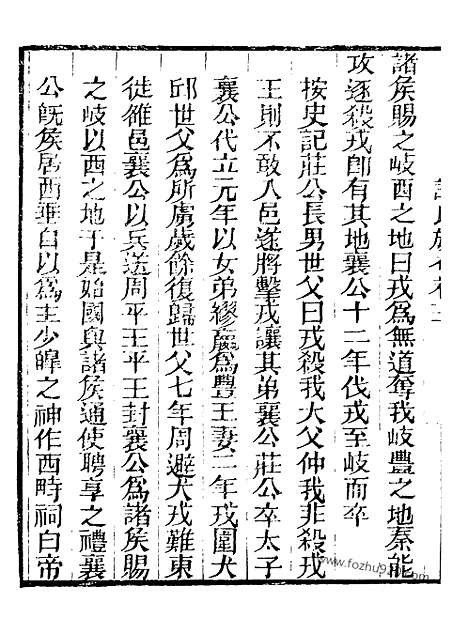 諸侯賜之岐酉之地曰戎爲無道奪我岐豐之地秦能
攻逐殺戎卽有其地襄公十二年伐戎至岐而卒
按史記莊公長男世父曰戎殺我大父仲我非殺戎
王則不敢入邑遂將擊戎讓其弟襄公莊公卒太子
襄公代立元年以女弟繆嬴爲豐王妻二年戎圍犬
邱世父爲所虜歲餘復歸世父七年周避犬戎難東
徙雒邑襄公以兵送周平王平王封襄公爲諸侯賜
之岐以酉之地于是始國與諸侯通使聘享之禮襄
公旣侯居酉垂自以爲主少皡之神作西畤祠白帝
www.fozhu920.com